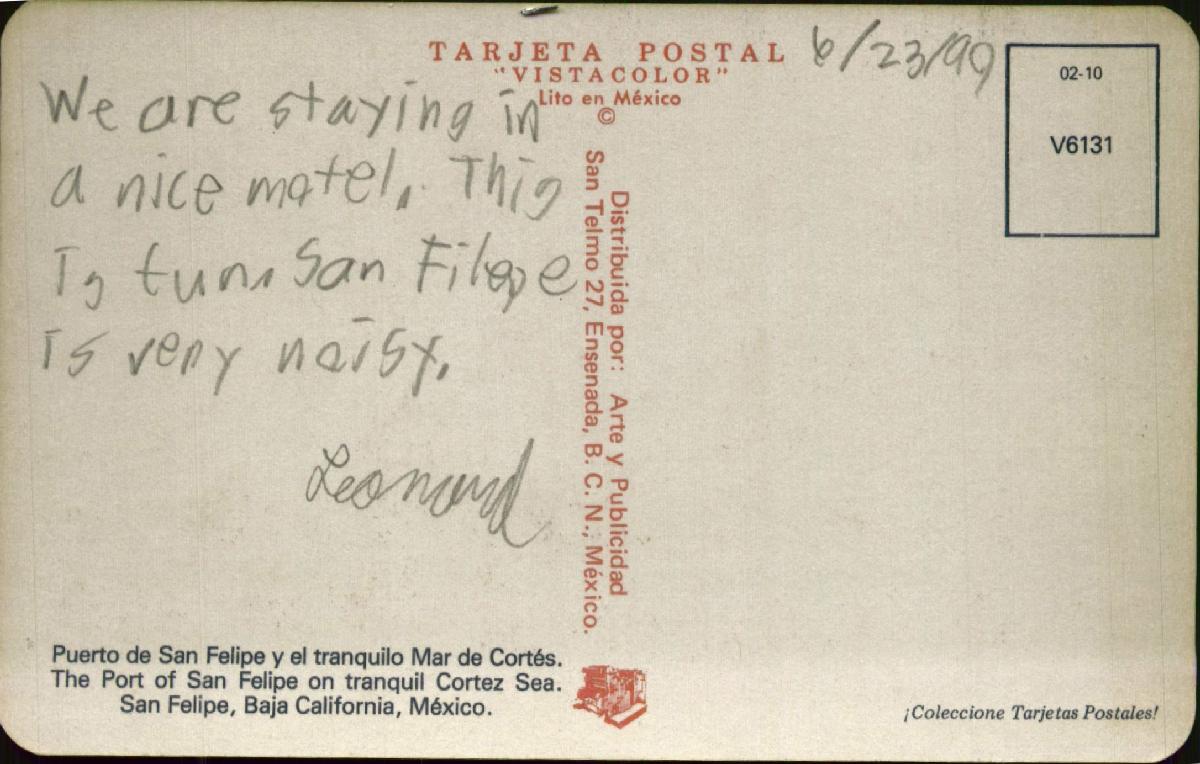 TARJETA POSTAL
"VISTACOLOR"
Lito en México
©
6/23/99
02-10
V6131
We are staying in
a nice motel. This
Is San Filepe
is very noisy.
Leonard
Distribuida por: Arte y Publicidad
San Telmo 27, Ensenada, B. C. N., México.
Puerto de San Felipe y el tranquilo Mar de Cortés.
The Port of San Felipe on tranquil Cortez Sea.
San Felipe, Baja California, México.
¡Coleccione Tarjetas Postales!